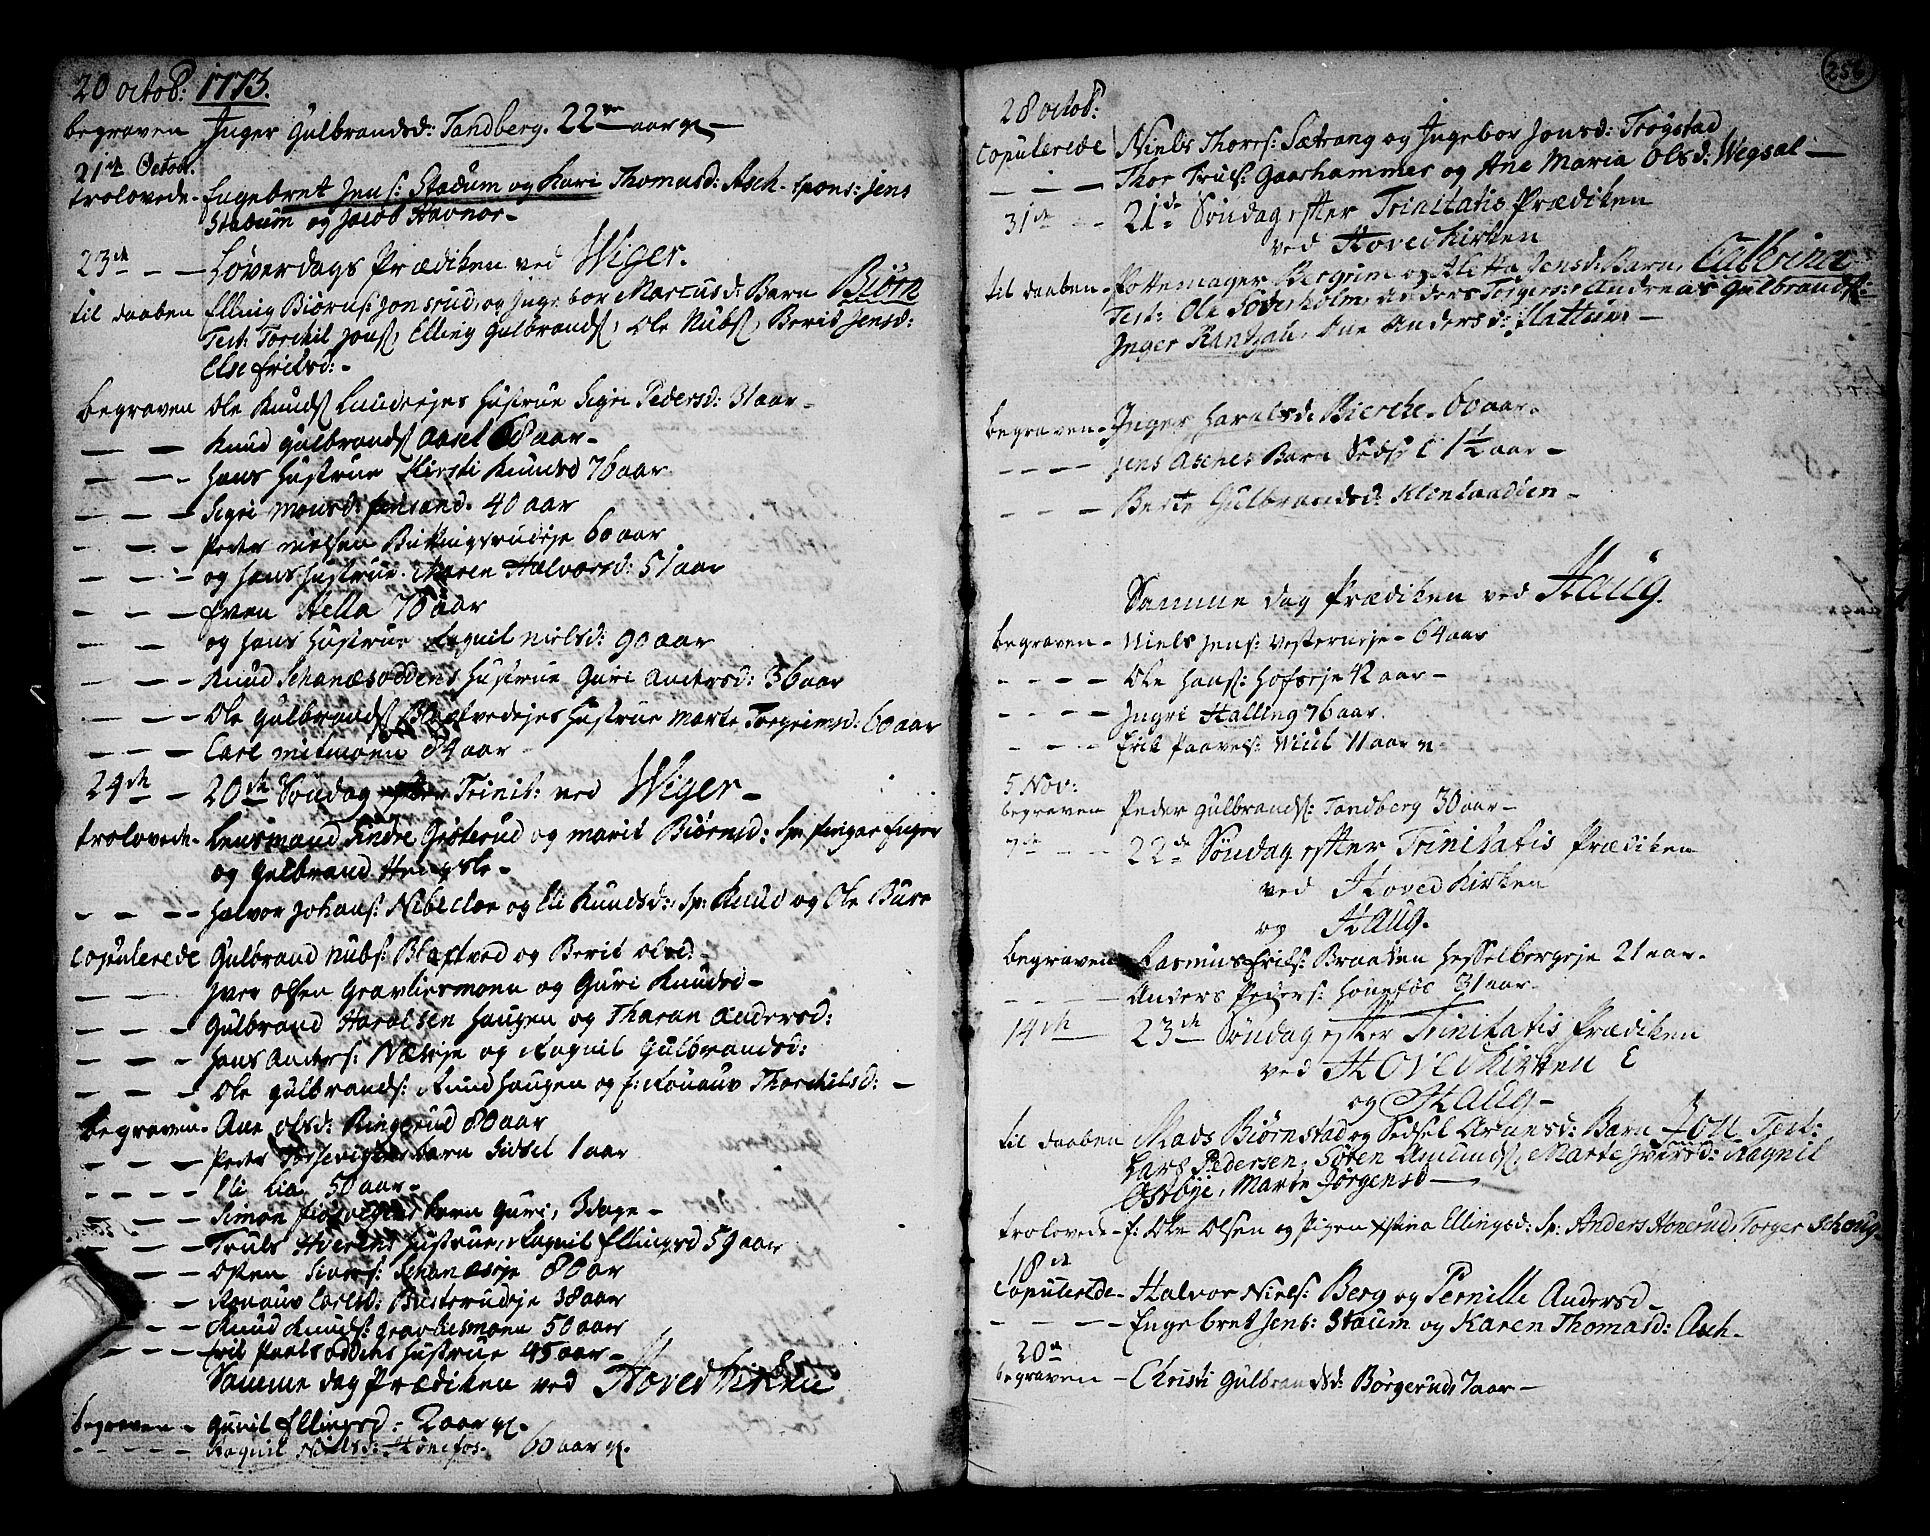 20 octob: 1773.
begraven Inger Gulbrandsd: Tandberg. 22 aar gl.
21de Octob.
trolovede Engebret Jens: Stadum og Kari Thomasd: Asch. spons: Jens
Stadum og Jacob Havnor
23de Löverdags Prædiken ved Wiger.
til daaben Elling Biörns: Jonsrud, og Ingebor Marcusd: Barn Biörn
Test: Torchil Jons, Elling Gulbrands, Ole Nubs, Berit Jensd:
Else Frilsd:
begraven Ole Knuds Hustrue Sigri Pedersd: 31 aar
Knud Gulbrands Aasel 68 aar
hans Hustrue Kirsti Knudsd 76 aar
Sigri Monsd: 40 aar
Peder Nielsen 60 aar
og hans Hustrue Maren Halvorsd: 51 aar
Even Hella 76 aar
og hans Hustrue Ragnil Nielsd: 90 aar
Knud Schanesoddens Hustrue Guri Andersd: 36 aar
Ole Gulbrands Hustrue Marte Torgrimsd: 60 aar
Carl Mitmoen 84 aar
24de 20de Söndag efter Trinit: ved Wiger
trolovede Lensmand Sindre Gröterud og Marit Biörnsd: Sp.
og Gulbrand Hengsle
Halvor Johans: og Eli Knudsd: Sp: Knud og Ole Bure
Copulerede Gulbrand Nubs: Blaktved og Berit Olsd:
Iver Olsen Gravliermoen og Guri Knudsd
Gulbrand Haralsen Haugen og Tharan Andersd:
Hans Anders: og Ragnil Gulbrandsd:
Ole Gulbrands: Knud Haugen og Ronauv Thorchilsd:
begraven Ane Olsd: Ringerud 80 aar
Peder barn Sidsel 1 aar
Eli Lia 50 aar
Simon barn Guri, 3 dage
Truls Hverens Hustrue, Ragnil Ellingsd 59 aar
Schaneseje 80 aar
Ronauv Carlsd: Busterudeje 38 aar
Knud Knuds: Gravliermoen 50 aar
Erik Paalsoddens Hustrue 45 aar
Samme dag Prædiken ved Hoved Kirken
begraven Gunil Ellingsd: 2 aar gl.
Ragnil Nielsd: Hönefos. 60 aar gl.
256
28 octob:
Copulerede Niels Thores: Sætrang og Ingebor Jonsd: Trögstad
Thor Truls: Gaarhammer og Ane Maria Olsd: Wegsal
31de 21de Söndag efter Trinitatis Prædiken
ved Hoved Kirken
til daaben Pottemager Bergrim og Aletta Jensd: Barn, Catrina
Test: Ole Söderholm, Anders Torgers: Andreas Gulbrands:
Inger Rantzau, Ane Andersd: Hattum
begraven Inger Haralsd: Bierche. 60 aar.
Jens Asches Barn 1 1/2 aar
Berte Gulbrandsd: Klentaadden
Samme dag Prædiken ved Haug.
begraven Niels Jens: Vesterneje 64 aar
Ole Hans: Hofseje 42 aar
Ingri Halling 76 aar.
Erik Paavels: Wiul 11 aar
5 Nov:
begraven Peder Gulbrands: Tandberg 30 aar
7de 22de Söndag efter Trinitatis Prædiken
ved Hoved Kirken
og Haug.
begraven Rasmus Frils: Braaten Hesselbergeje 21 aar.
Anders Peders: Hönefos 31 aar
14de 23de Söndag efter Trinitatis Prædiken
ved Hoved Kirken
og Haug
til daaben Mads Biörnstad og Sedsel Arunsd: Barn Test:
Lars Pedersen, Sören Amunds, Marte Iversd: Ragnil
Östbye, Marte Jörgensd
trolovede f: Ole Olsen og Pigen Ellingsd: Sp: Anders Honerud, Torger Schoug
18de
Copulerede Halvor Niels: Berg og Pernille Andersd
Engebret Jens: Staum og Karen Thomasd: Asch
20de
begraven Christi Gulbrandsd: Börgerud, 7 aar